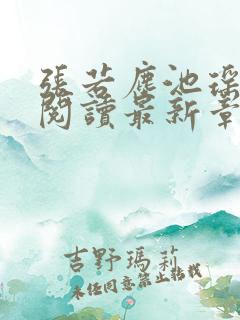 張若塵池瑤
閱讀最新章
吉野瑪莉
未經同意禁止轉載